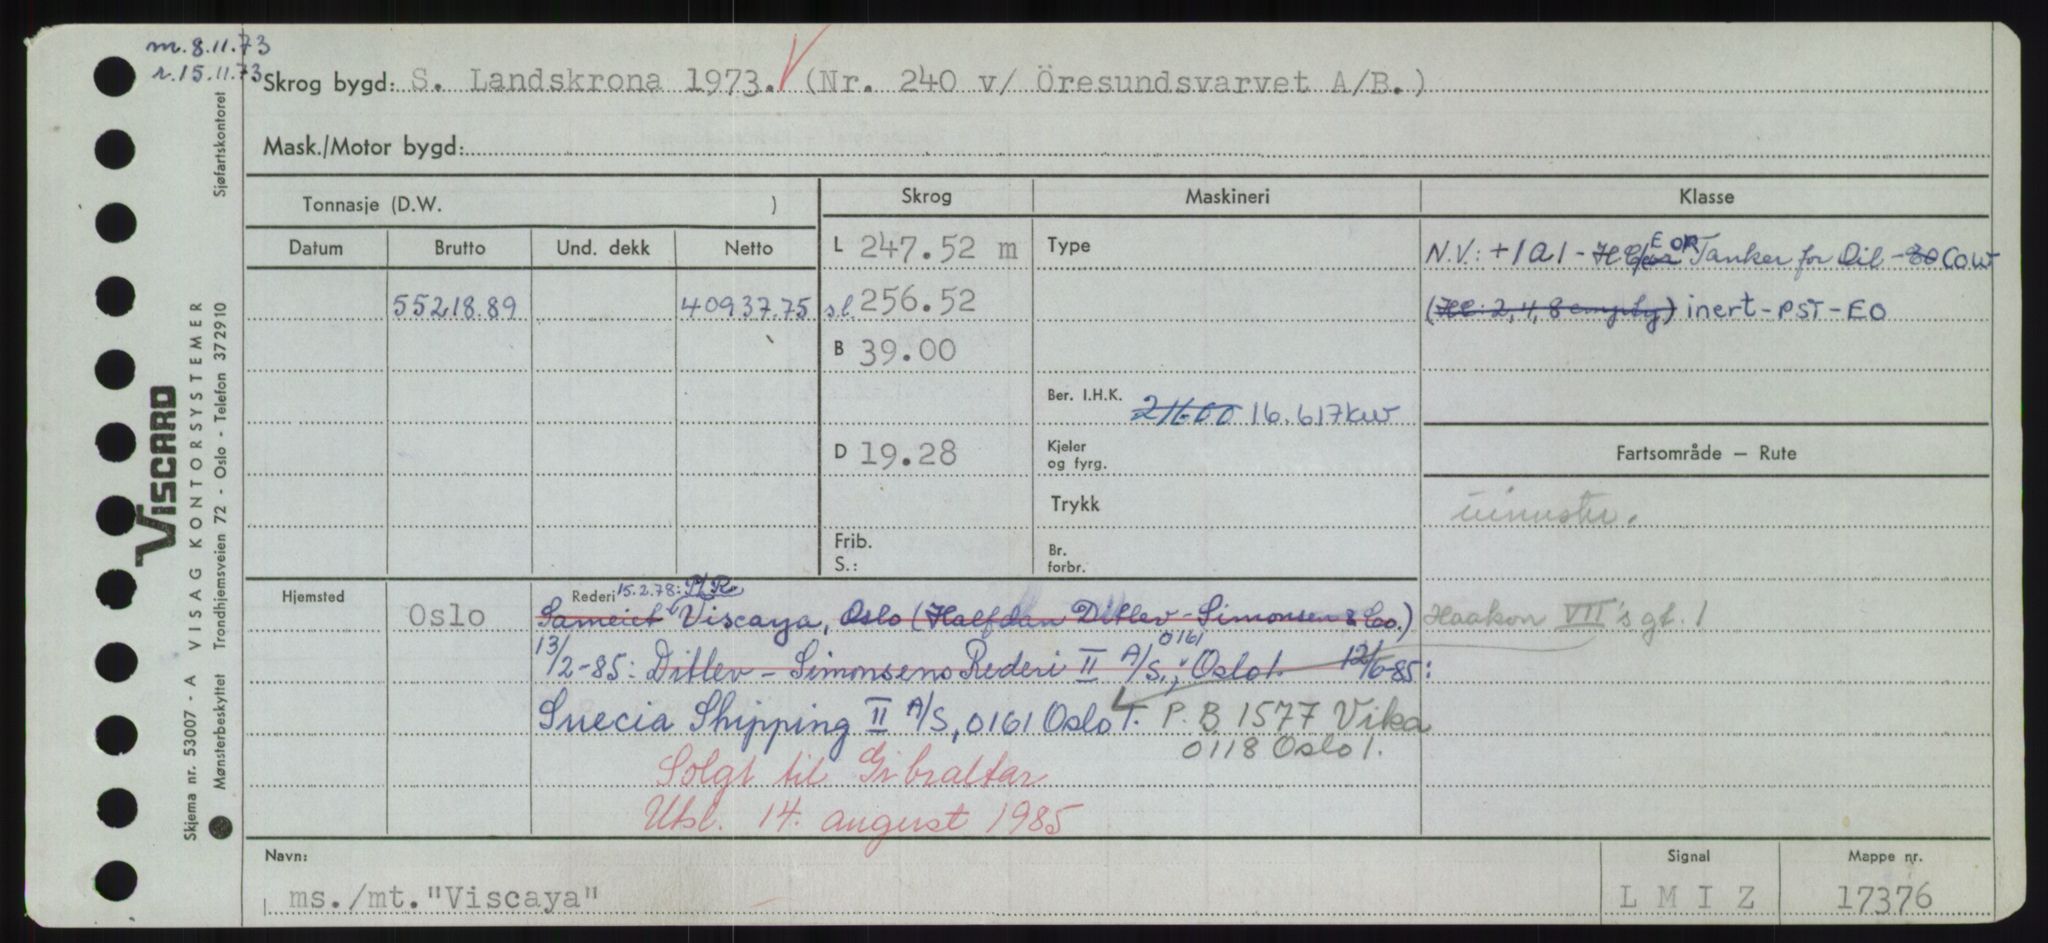 m. 8.11.73
r. 15.11.73
Skrog bygd: S. Landskrona 1973. (Nr. 240 v/ Öresundsvarvet A/B.)
Mask./Motor bygd:
Tonnasje (D.W. )
Skrog
Maskineri
Klasse
Datum
Brutto
Und. dekk
Netto
L 247.52 m
Type
N.V.: +1A1 - EOR Tanker for Oil - COW
55218.89
40937.75
s.l. 256.52
inert - PST - EO
B 39.00
Ber. I.H.K. 21600 16.617kw
D 19.28
Kjeler
og fyrg.
Fartsområde — Rute
Trykk
Frib.
S.:
Br.
forbr.
Hjemsted
Oslo
Rederi 15.2.78: P/R
Sameiet Viscaya, Oslo (Halfdan Ditlev-Simonsen & Co.) Haakon VII's gt. 1
13/2-85: Ditlev-Simonsens Rederi II A/S, 0161 Oslo 1. 12/6-85:
Suecia Shipping II A/S, 0161 Oslo 1. P.B 1577 Vika
0118 Oslo 1.
Solgt til Gibraltar
Utsl. 14. august 1985
Navn:
ms./mt. "Viscaya"
Signal
L M I Z
Mappe nr.
17376
VISCARD
VISAG KONTORSYSTEMER
Sjøfartskontoret
Skjema nr. 53007 - A
Mønsterbeskyttet Trondhjemsveien 72 - Oslo - Telefon 37 29 10